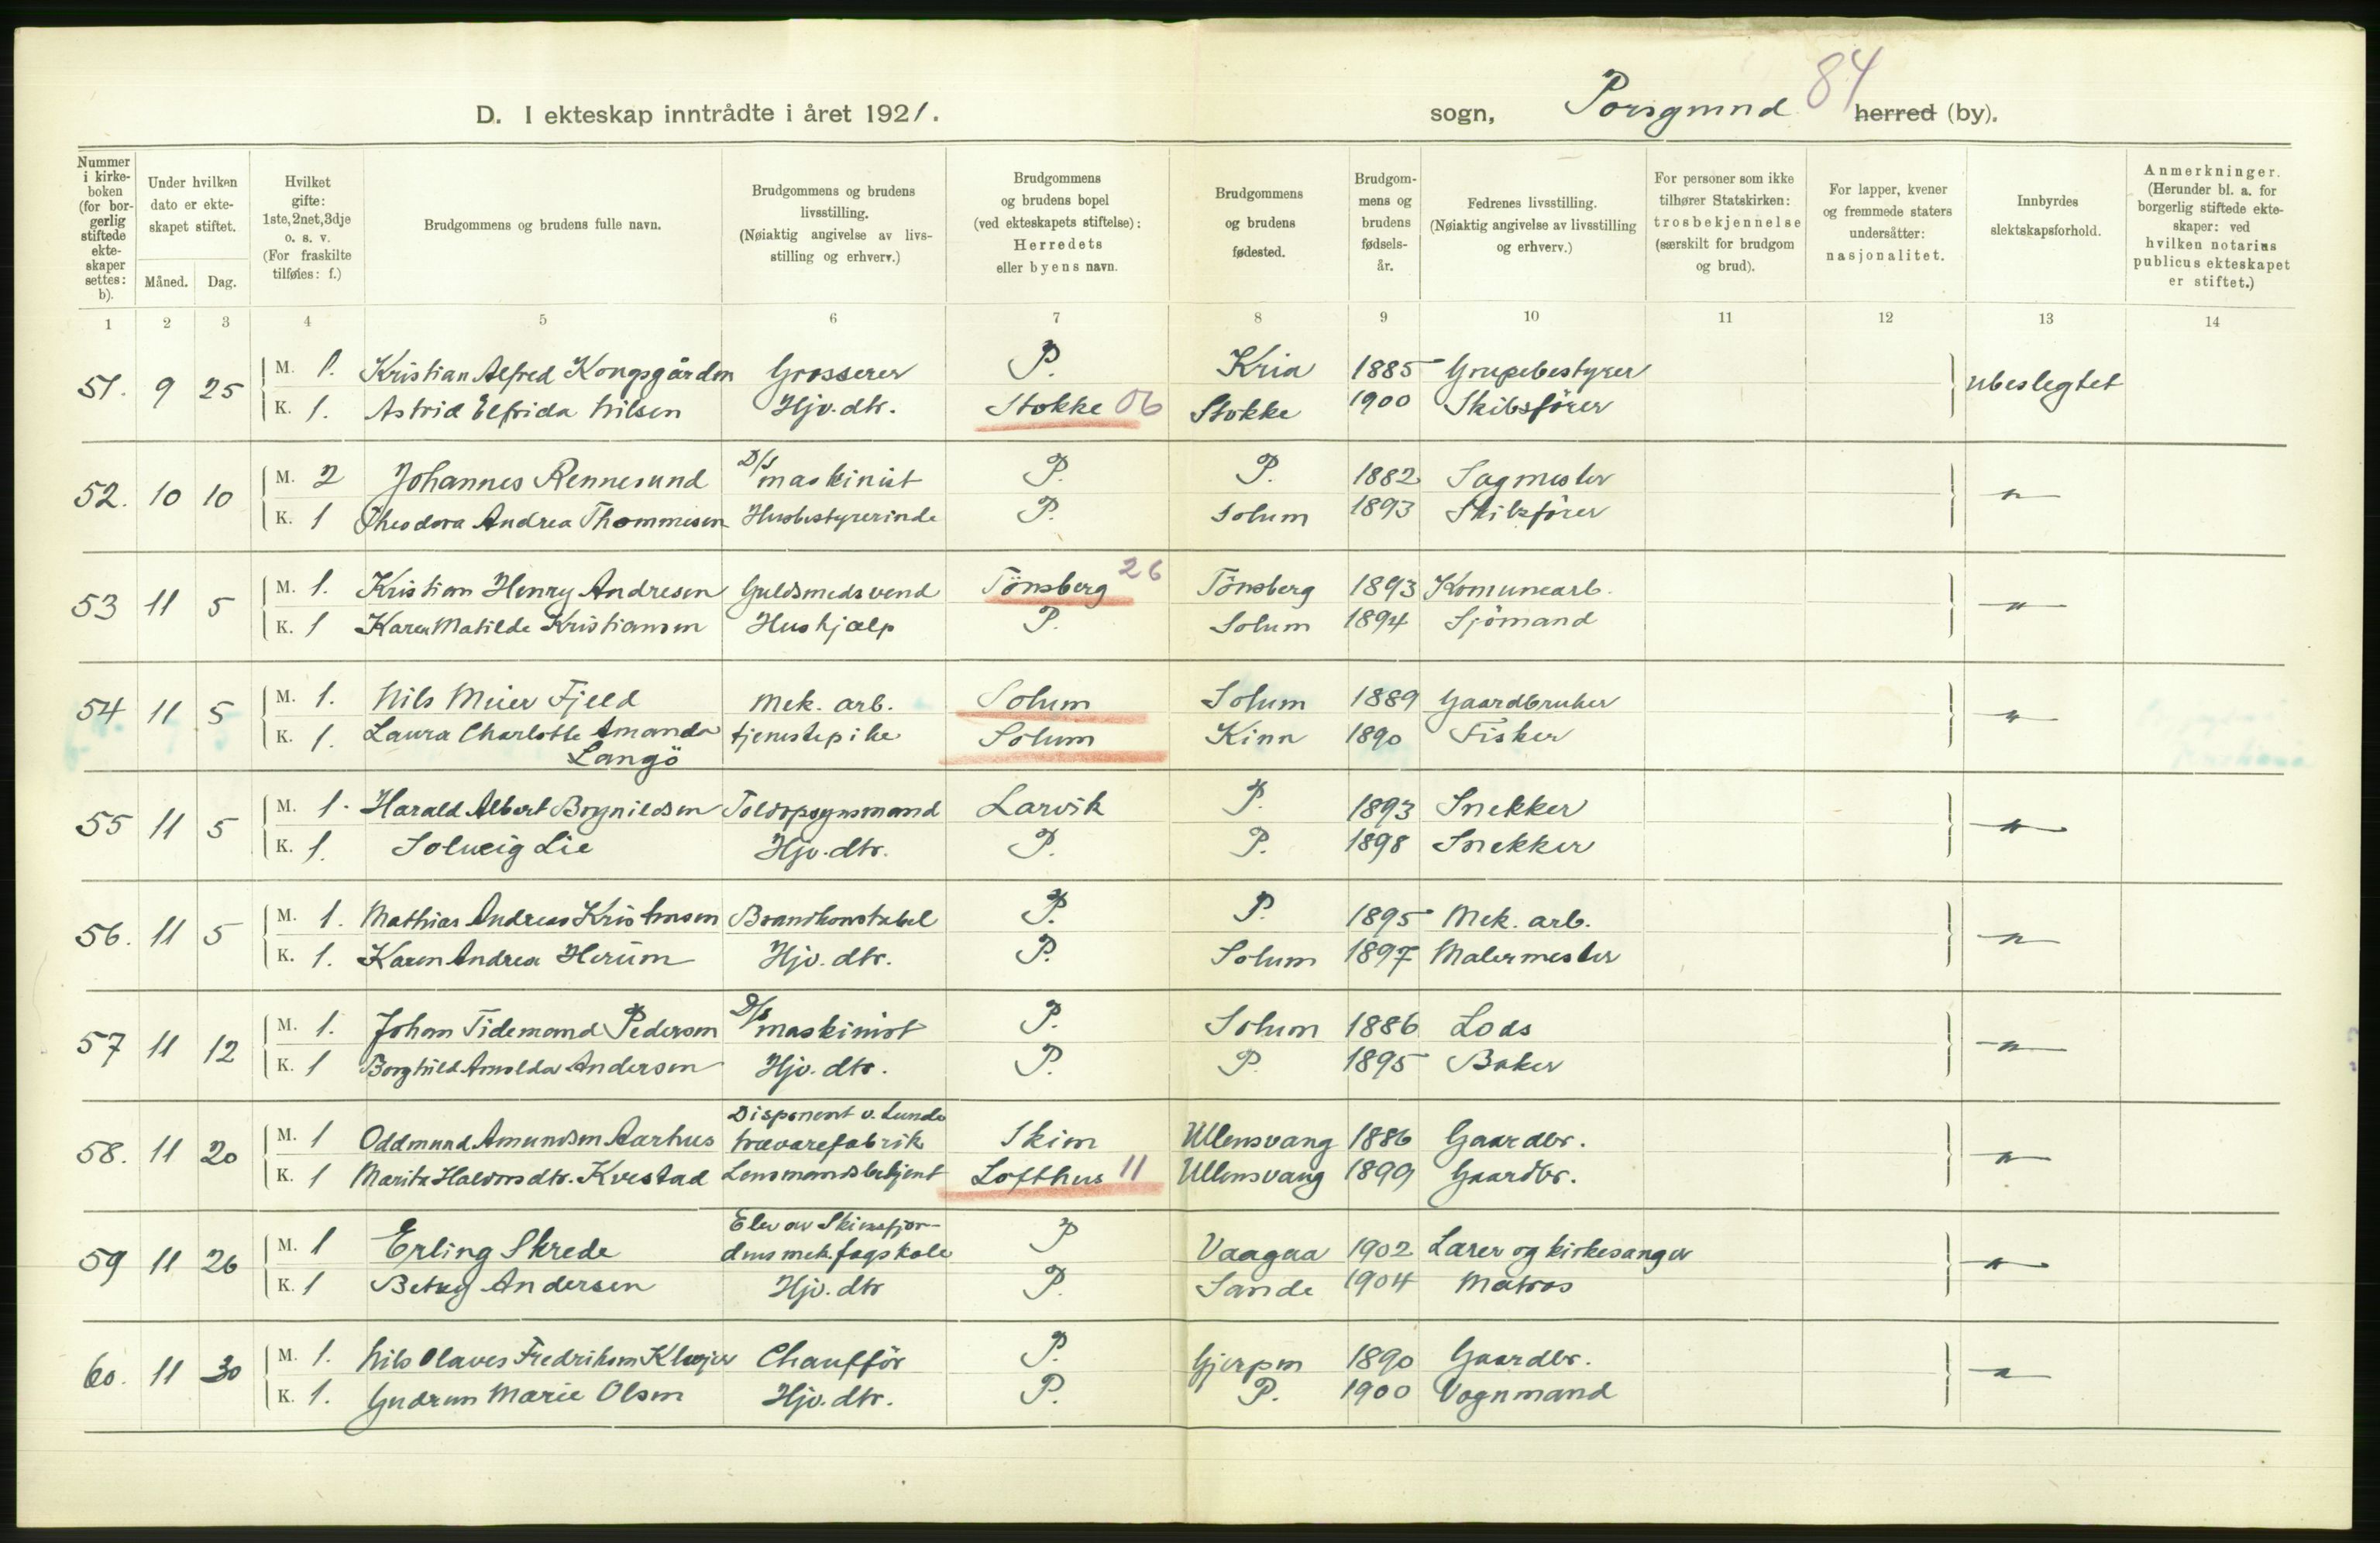 D. I ekteskap inntrådte i året 1921.
sogn, Porsgrund herred (by). 84
Nummer i kirke-boken (for bor-gerlig stiftede ekte-skaper settes: b).
Under hvilken dato er ekte-skapet stiftet.
Måned. Dag.
Hvilket gifte: 1ste, 2net, 3dje o. s. v. (For fraskilte tilføies: f.)
Brudgommens og brudens fulle navn.
Brudgommens og brudens livsstilling. (Nøiaktig angivelse av livs-stilling og erhverv.)
Brudgommens og brudens bopel (ved ekteskapets stiftelse): Herredets eller byens navn.
Brudgommens og brudens fødested.
Brudgom-mens og brudens fødsels-år.
Fedrenes livsstilling. (Nøiaktig angivelse av livsstilling og erhverv.)
For personer som ikke tilhører Statskirken: trosbekjennelse (særskilt for brudgom og brud).
For lapper, kvener og fremmede staters undersåtter: nasjonalitet.
Innbyrdes slektskapsforhold.
Anmerkninger. (Herunder bl. a. for borgerlig stiftede ekte-skaper: ved hvilken notarius publicus ekteskapet er stiftet.)
1 2 3 4 5 6 7 8 9 10 11 12 13 14
51. 9 25 M. 1. Kristian Alfred Kongsgården Grosserer P. Kria 1885 Grupebestyrer ubeslegtet
K. 1. Astrid Elfrida Nilsen Hjv. dtr. Stokke 06 Stokke 1900 Skibsfører
52. 10 10 M. 2 Johannes Rennesund D/s maskinist P. P. 1882 Sagmester "
K. 1 Theodora Andrea Thommesen Husbestyrerinde P. Solum 1893 Skibsfører
53 11 5 M. 1. Kristian Henry Andresen Guldsmedsvend Tönsberg 26 Tönsberg 1893 Komunearb. "
K. 1 Karen Matilde Kristiansen Hushjælp P. Solum 1894 Sjömand
54 11 5 M. 1. Nils Meier Fjeld Mek. arb. Solum Solum 1889 Gaardbruker "
K. 1. Laura Charlotte Amanda Langö tjenestepike Solum Kinn 1890 Fisker
55 11 5 M. 1. Harald Albert Brynildsen Toldopsynsmand Larvik P. 1893 Snekker "
K. 1. Solveig Lie Hjv. dtr. P. P. 1898 Snekker
56. 11 5 M. 1. Mathias Andreas Kristensen Brandkonstabel P. P. 1895 Mek. arb. "
K. 1. Karen Andrea Herum Hjv. dtr. P. Solum 1897 Malermester
57 11 12 M. 1. Johan Tidemand Pedersen D/s maskinist P. Solum 1886 Lods "
K. 1 Borghild Arnolda Andersen Hjv. dtr. P. P. 1895 Baker
58. 11 20 M. 1 Oddmund Amundsen Aarhus Disponent v. Lunde trævarefabrik Skien Ullensvang 1886 Gaardbr. "
K. 1 Marita Halvorsdtr. Kvestad Lensmandsbetjent Lofthus 11 Ullensvang 1899 Gaardbr.
59 11 26 M. 1 Erling Skrede Elev av Skiensfjor-dens mek. fagskole P Vaagaa 1902 Lærer og kirkesanger "
K. 1 Betsy Andersen Hjv. dtr P. Sande 1904 Matros
60. 11 30 M. 1. Nils Olaves Fredriksen Chaufför P. Gjerpen 1890 Gaardbr. "
K. 1. Gudrun Marie Olsen Hjv. dtr. P. P. 1900 Vognmand